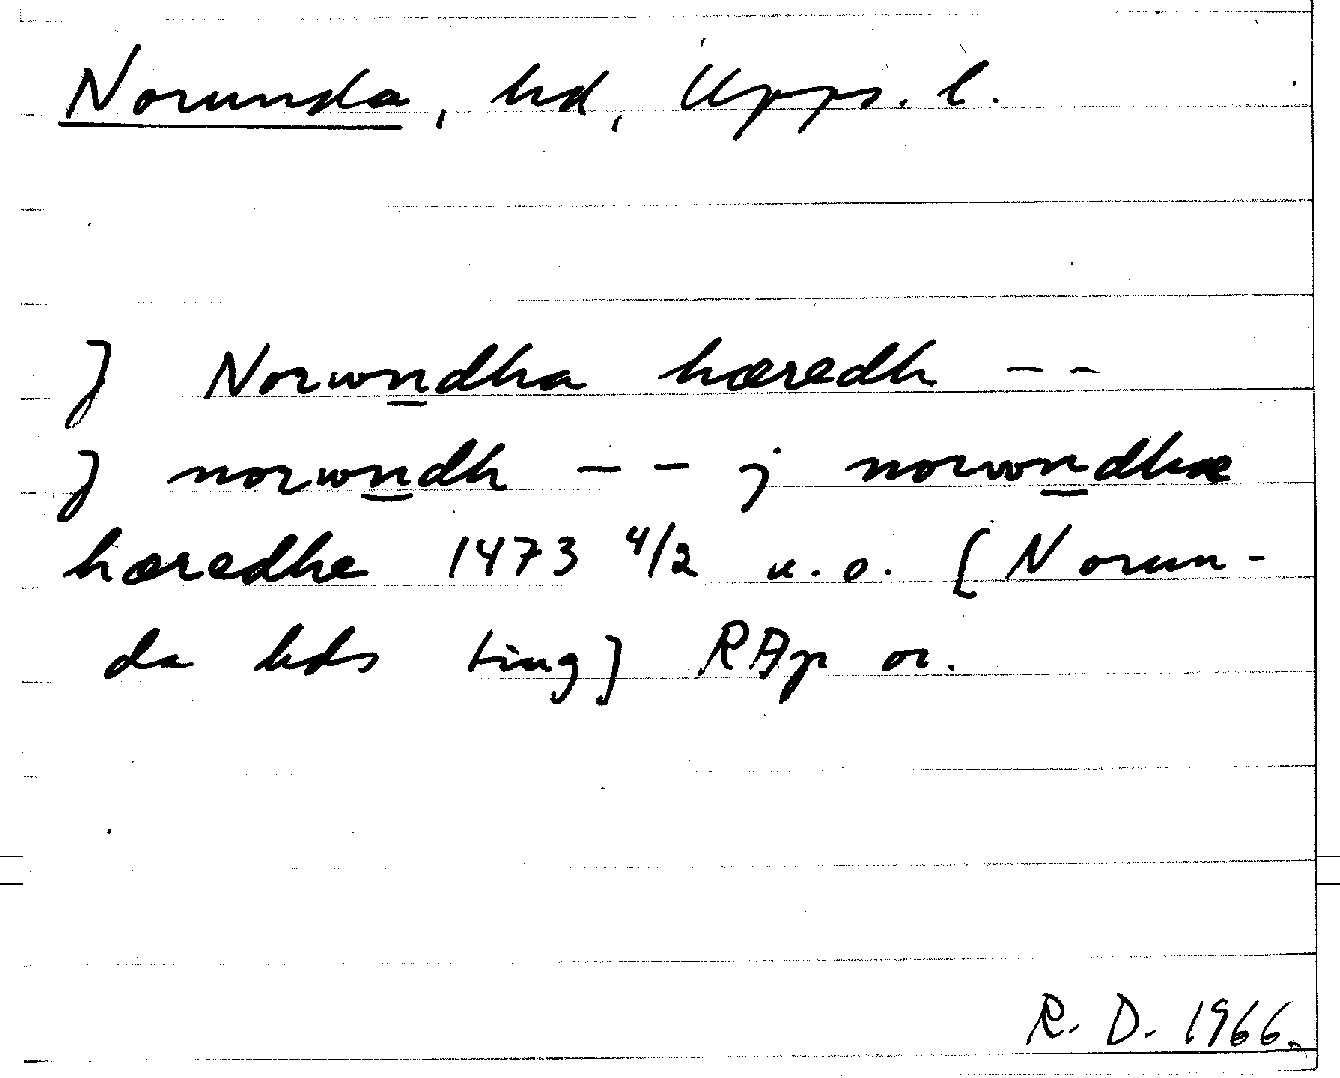 Norunda, hd, Upps. l.
J Norwndha hæredh --
J norwndh -- j norwndhæ
hæredhe 1473 4/2 u.o. [Norun-
da hds ting] RAp or.
R. D. 1966.